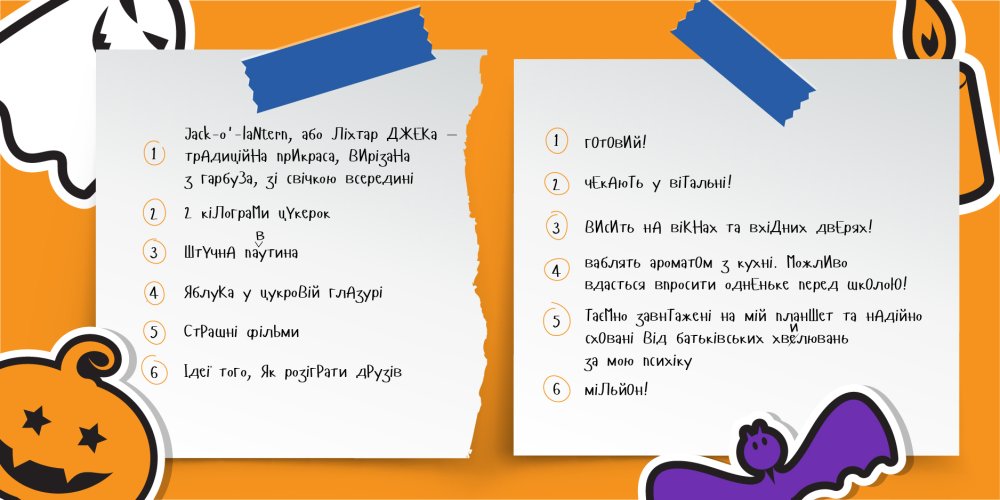 1 Jack-o'-laNtern, або Ліхтар ДЖЕКа –
трАдиційНа прИкраса, ВИрізаНа
з гарбуЗа, зі свічкою всередині
2 2 кіЛограМи цУкерок
В
3 ШтУчнА паутина
4 ЯблуКа у цукроВій глАзурі
5 СтРашні фіЛЬми
6 Ідеї того, Як розіГРати дРУзів
1 гОтОвИй!
2 чЕкАюТь у віТальні!
3 ВИсИть нА віКНах та вхіДних двЕрях!
4 ваблять ароматОм з кухні. МожлИво
вдасться впросити однЕньке перед шкОлоЮ!
5 ТаєМно завнТажені на мій планШет та нАдійно
и
схОвані Від батьківських хвелювань
за мою психіку
6 міЛЬйОн!